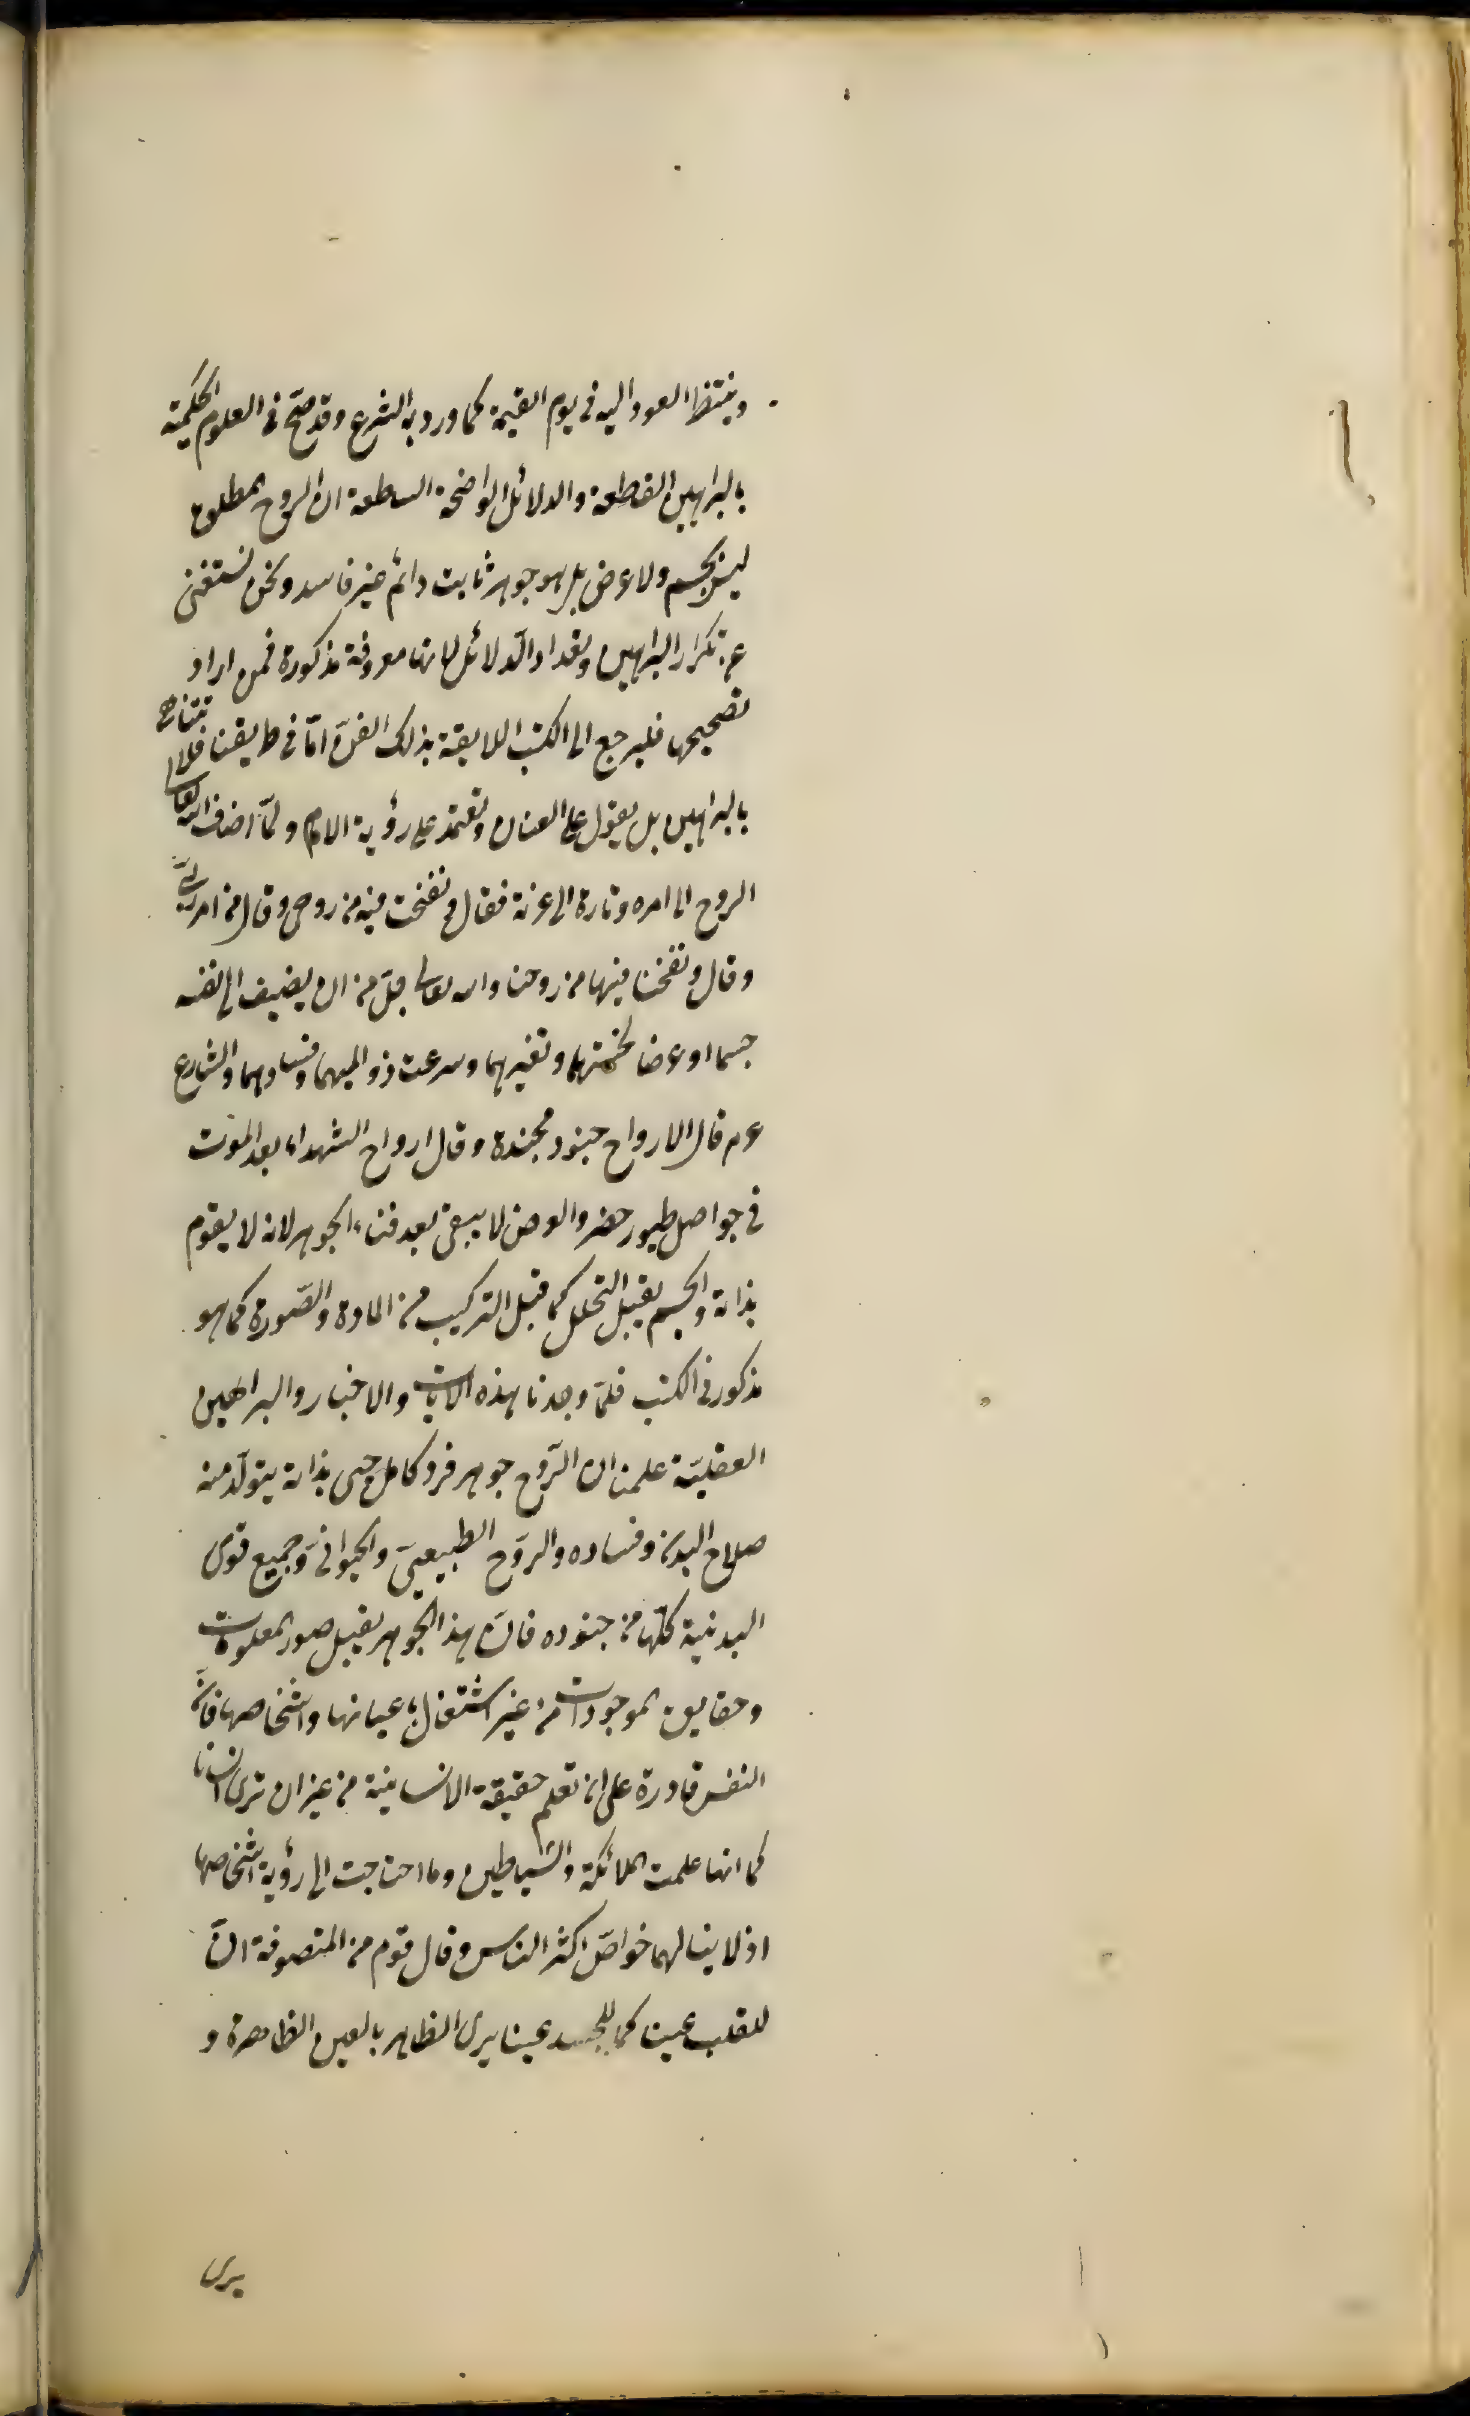 وينتظر العود اليه فى يوم القيمة كما ورد به الشرع وقد صحّ فى العلوم الحكمية
بالبراهين القاطعة والدلائل الواضحة الساطعة ان الروح المطلوع
ليس بجسم ولا عرض بل هو جوهر ثابت دائم غير فاسد ونحن نستغنى
عن تكرار البراهين وتعداد الدّلائل لانها معروفة مذكورة فمن اراد
تصحيحها فليرجع الى الكتب اللايقة بذلك الفنّ امّا فى طريقنا فلا تتناهى
بالبراهين بل يعوّل على العيان ونعتمد على رؤية الايمان ولمّا اضاف الله تعالى
الروح الى امره وتارة الى عزته فقال ونفخت فيه من روحى وقال من امر ربّى
وقال ونفخنا فيها من روحنا والله تعالى جلّ من ان يضيف الى نفسه
جسما او عرضا لخسّتهما وتغيرهما وسرعت زواليهما وفسادهما والشارع
عم قال الارواح جنود مجندة وقال ارواح الشهداء بعد الموت
فى حواصل طيور خضر والعرض لا يبقى بعد فناء الجوهر لانه لا يقوم
بذاته والجسم يقبل التحلل كما قبل التركيب من المادة والصّورة كما هو
مذكور فى الكتب فلمّا وجدنا هذه الايات والاخبار والبراهين
العقليّة علمنا ان الرّوح جوهر فرد كامل حى بذاته يتولّد منه
صلاح البدن وفساده والرّوح الطبيعىّ والحيوانىّ وجميع قوى
البدنية كلّها من جنوده فانّ هذا الجوهر يقبل صور المعلومات
وحقايق الموجودات من غير اشتغال باعيانها واشخاصها فانّ
النفس قادرة على ان تعلم حقيقة الانسانية من غير ان ترى انسانا
كما انها علمت الملائكة والشياطين وما احتاجت الى رؤية اشخاصها
اذ لا ينالهما خواصّ اكثر الناس وقال قوم من المتصوفة انّ
للقلب عينا كما للجسد عينا يرى الظاهر بالعين الظاهرة و
يرى